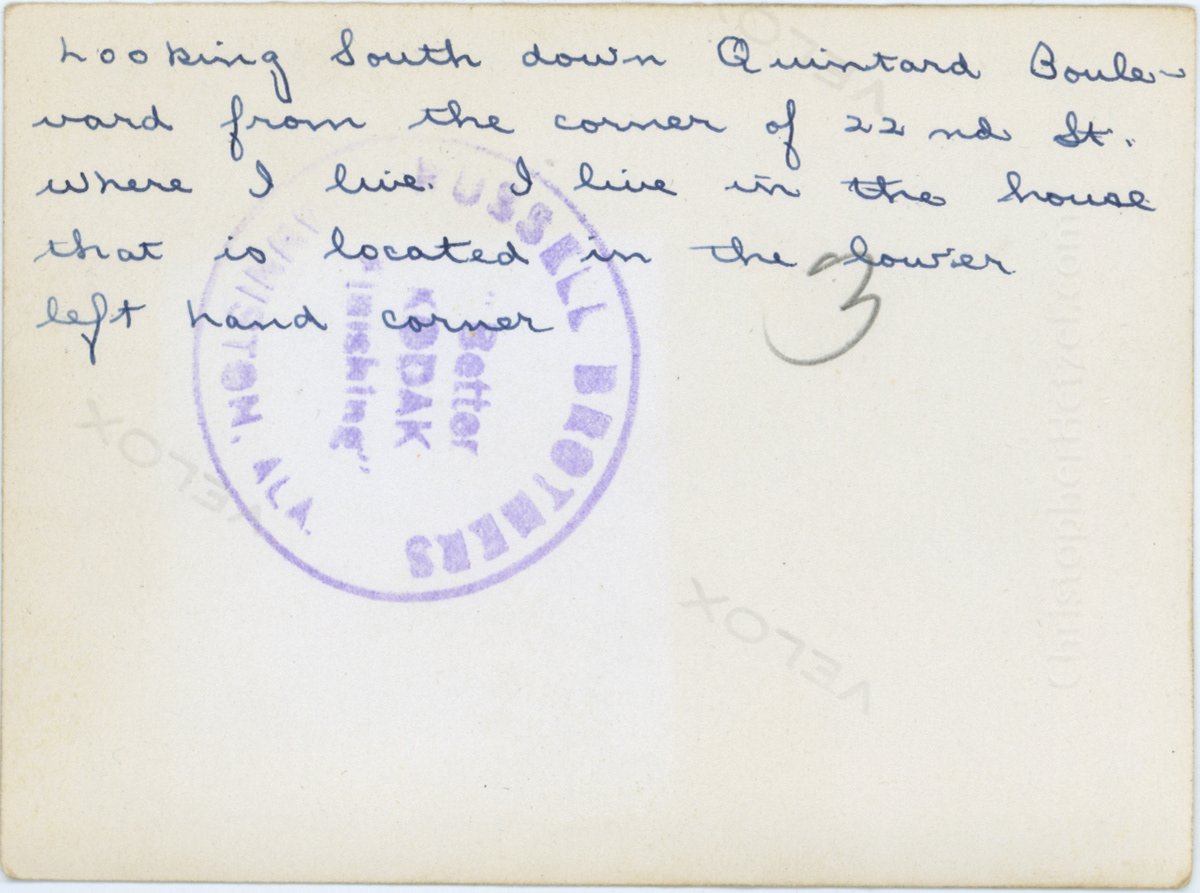 Looking South down Quintard Boule-
vard from the corner of 22nd St.
where I live. I live in the house
that is located in the lower
left hand corner
3
RUSSELL BROTHERS
"Better
KODAK
Finishing"
ANNISTON, ALA.
VELOX
VELOX
VELOX
Christopherthetzel.com